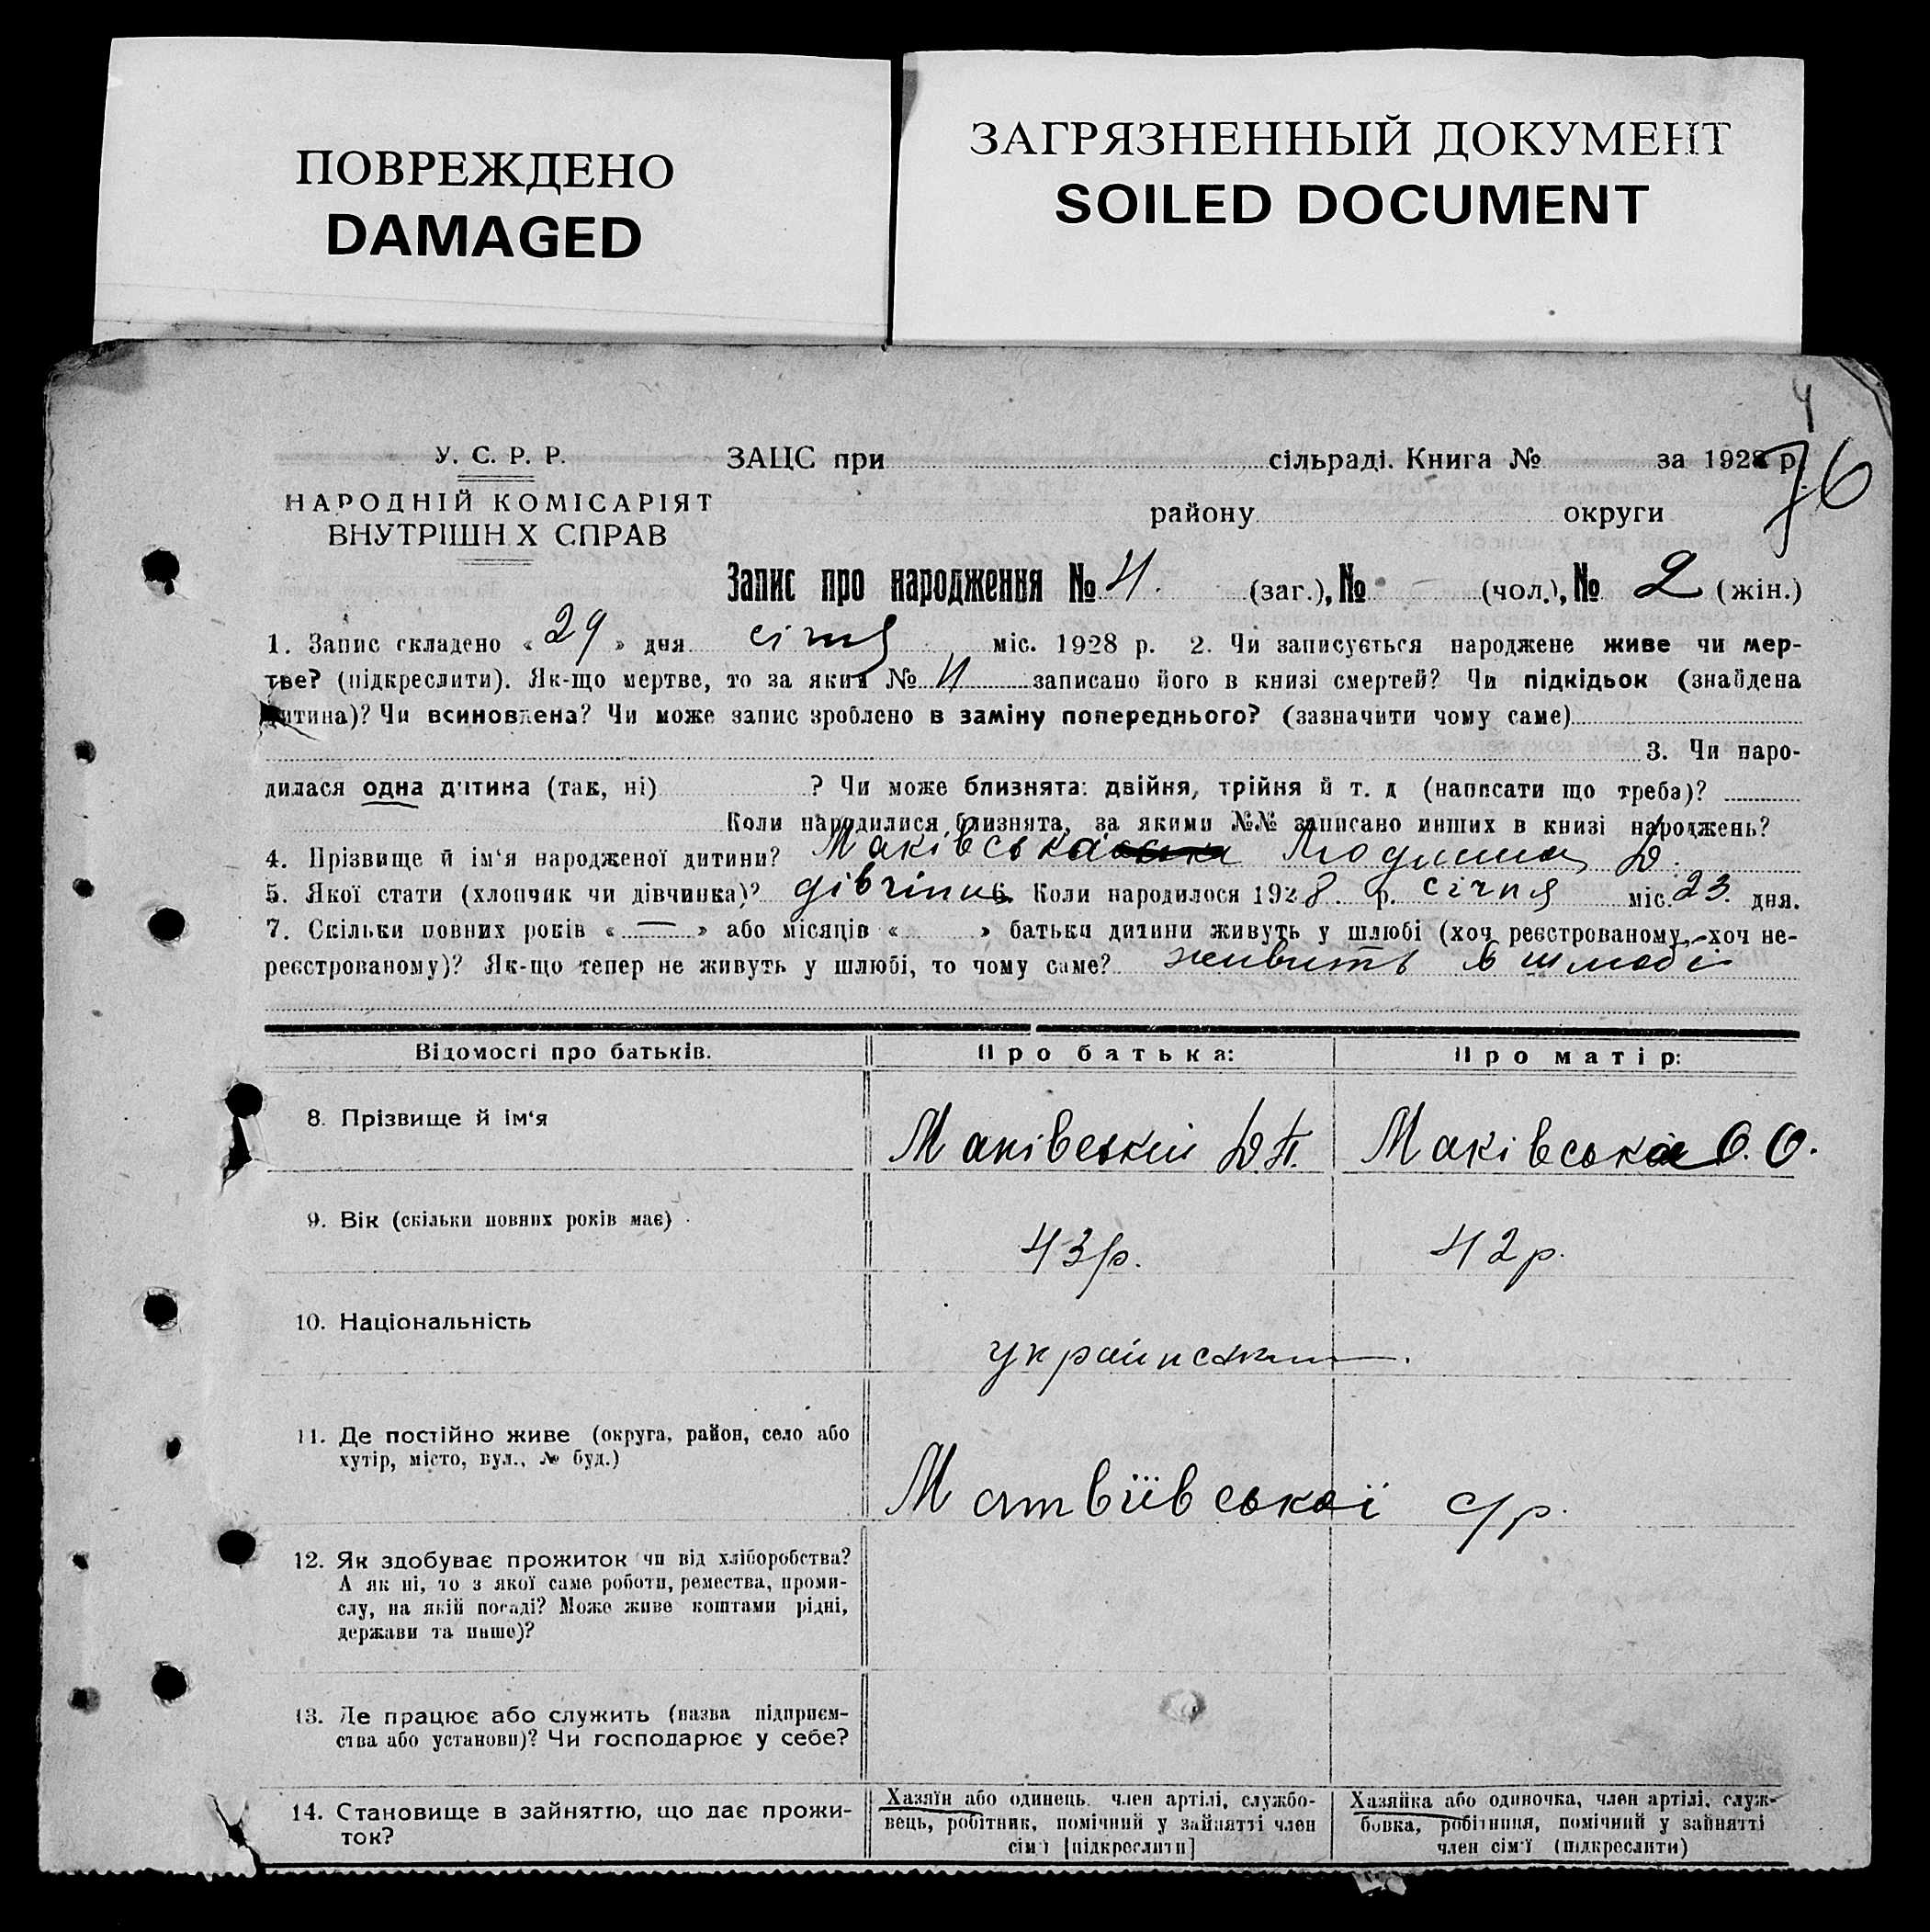 ПОВРЕЖДЕНО
DAMAGED
ЗАГРЯЗНЕННЫЙ ДОКУМЕНТ
SOILED DOCUMENT
4
76
У. С. Р. Р.
НАРОДНІЙ КОМІСАРІЯТ
ВНУТРІШН Х СПРАВ
ЗАЦС при сільраді. Книга № за 1928 р.
району округи
Запис про народження № 4. (заг.), № - (чол.), № 2 (жін.)
1. Запис складено « 29 » дня січня міс. 1928 р. 2. Чи записується народжене живе чи мер-
тве? (підкреслити). Як-що мертве, то за яким № 4 записано його в книзі смертей? Чи підкідьок (знайдена
дитина)? Чи всиновлена? Чи може запис зроблено в заміну попереднього? (зазначити чому саме)
3. Чи наро-
дилася одна дитина (так, ні) ? Чи може близнята: двійня, трійня й т. д (написати що треба)?
Коли народилися близнята, за якими №№ записано инших в книзі народжень?
4. Прізвище й ім‘я народженої дитини? Маківська Людмила Д.
5. Якої стати (хлопчик чи дівчинка)? дівчина 6. Коли народилося 1928 р. січня міс. 23. дня.
7. Скільки повних років « — » або місяців « » батьки дитини живуть у шлюбі (хоч реєстрованому, хоч не-
реєстрованому)? Як-що тепер не живуть у шлюбі, то чому саме? живуть в шлюбі
Відомості про батьків. Про батька: Про матір:
8. Прізвище й ім‘я Маківський Д. П. Маківська О. О.
9. Вік (скільки повних років має) 43 р. 42 р.
10. Національність
11. Де постійно живе (округа, район, село або
хутір, місто, вул., № буд.)
Матвіївської с/р.
12. Як здобуває прожиток чи від хліборобства?
А як ні, то з якої саме роботи, ремества, проми-
слу, на якій посаді? Може живе коштами рідні,
держави та инше)?
13. Де працює або служить (назва підприєм-
ства або установи)? Чи господарює у себе?
14. Становище в зайняттю, що дає прожи-
ток?
Хазяїн або одинець. член артілі, службо-
вець, робітник, помічний у зайнятті член
сім'ї [підкреслити]
Хазяйка або одиночка, член артілі, служ-
бовка, робітниця, помічний у зайнятті
член сім'ї (підкреслити)